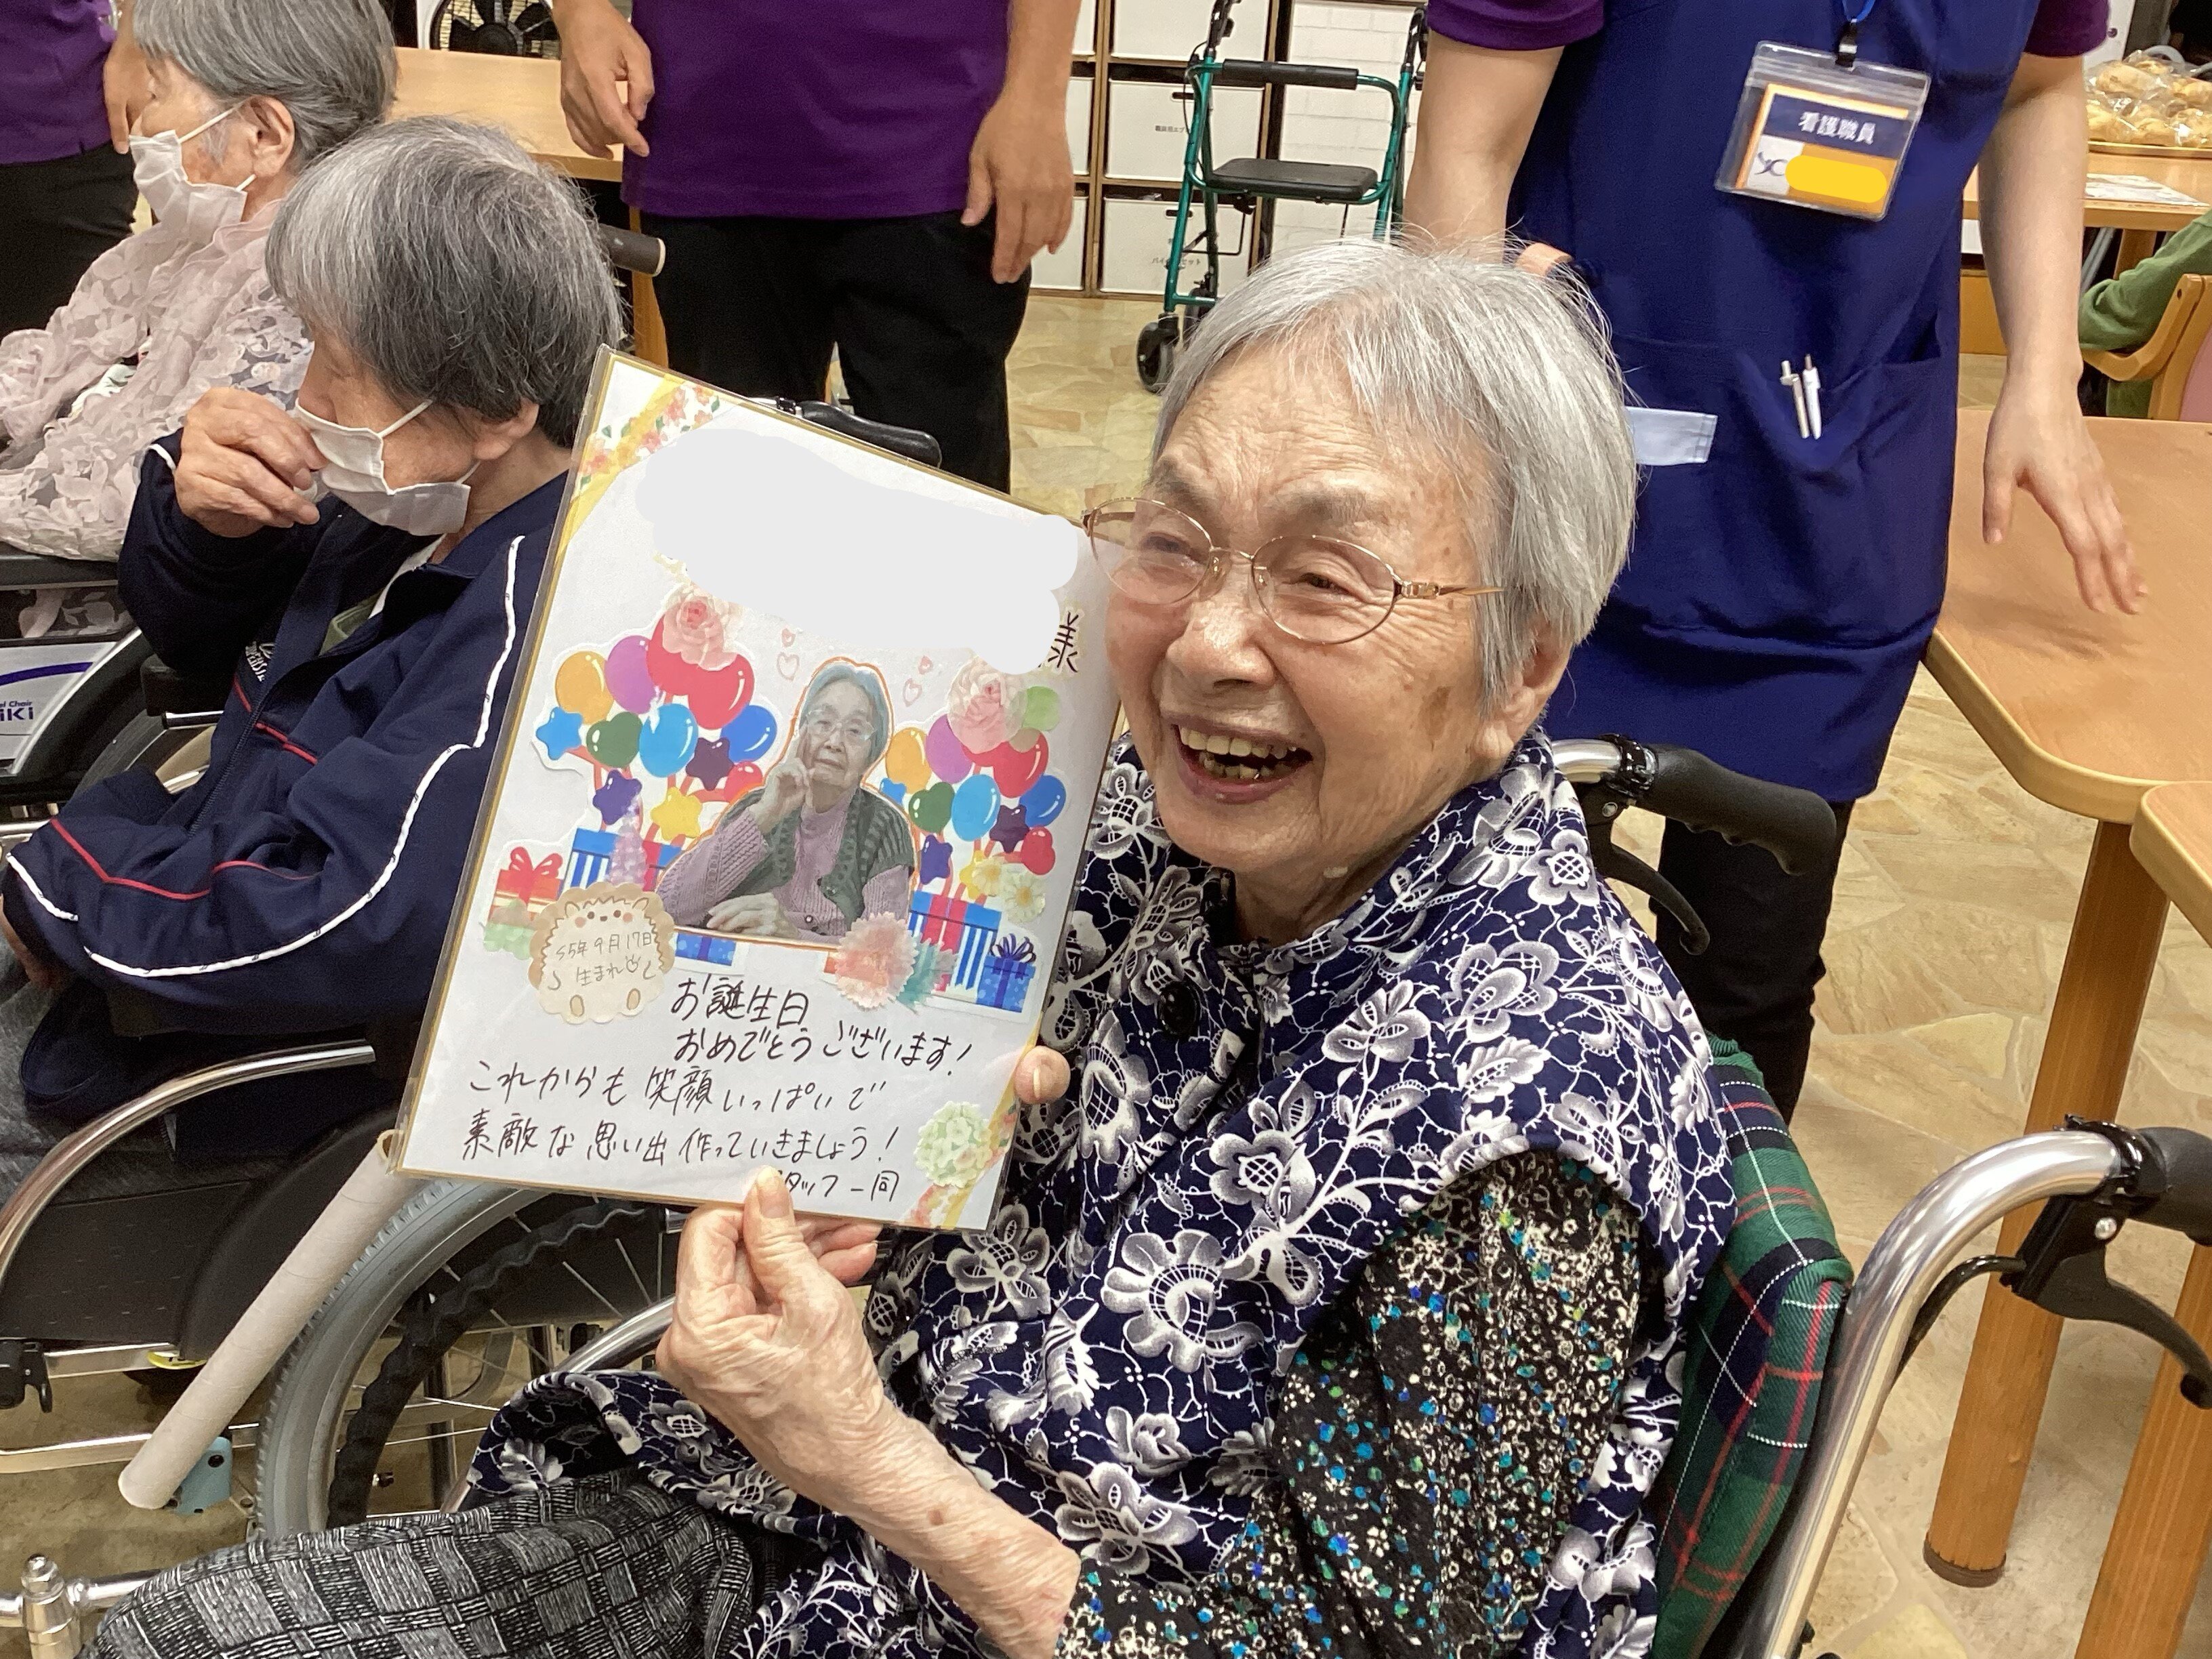 看護職員
様
S5年9月17日
生まれ
お誕生日
おめでとうございます!
これからも笑顔いっぱいで
素敵な思い出作っていきましょう!
タッフ一同